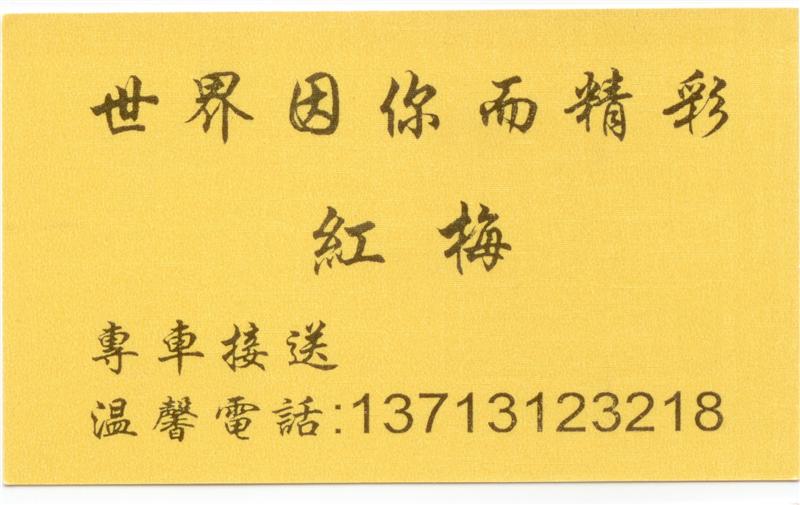 世界因你而精彩
紅梅
專車接送
温馨電話:13713123218